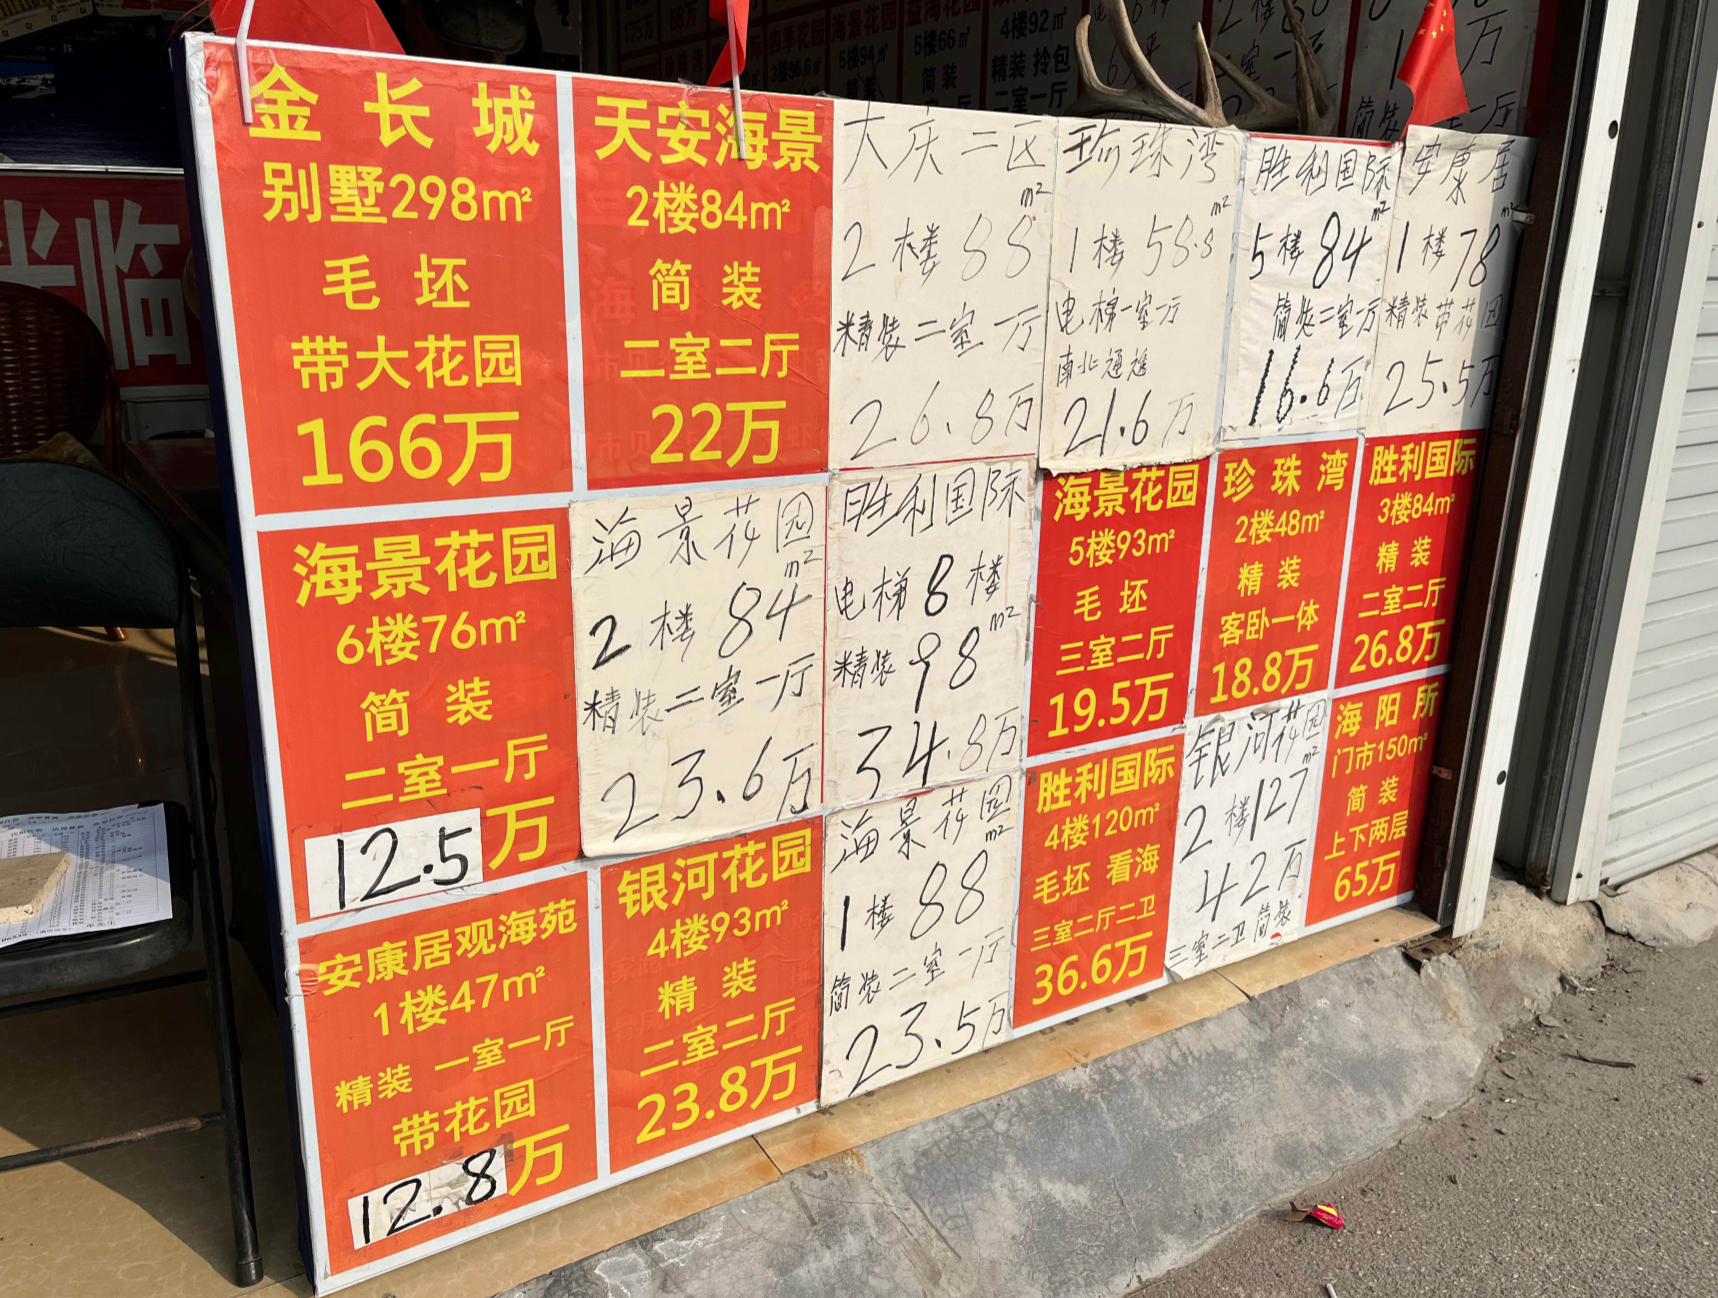 金长城
别墅298m²
毛坯
带大花园
166万
天安海景
2楼84m²
简装
二室二厅
22万
大庆二区
2楼88m²
精装二室一厅
26.8万
珍珠湾
1楼58.8m²
电梯一室一厅
南北通透
21.6万
胜利国际
5楼84m²
简装二室一厅
16.6万
安康居
1楼78m²
精装带花园
25.5万
海景花园
6楼76m²
简装
二室一厅
12.5万
海景花园
2楼84m²
精装二室一厅
23.6万
胜利国际
电梯8楼
精装98m²
34.8万
海景花园
5楼93m²
毛坯
三室二厅
19.5万
珍珠湾
2楼48m²
精装
客卧一体
18.8万
胜利国际
3楼84m²
精装
二室二厅
26.8万
安康居观海苑
1楼47m²
精装 一室一厅
带花园
12.8万
银河花园
4楼93m²
精装
二室二厅
23.8万
海景花园
1楼88m²
简装二室一厅
23.5万
胜利国际
4楼120m²
毛坯 看海
三室二厅二卫
36.6万
银河花园
2楼127m²
42万
三室二卫简装
海阳所
门市150m²
简装
上下两层
65万
四季花园
3楼96.6㎡
海景花园
5楼94㎡
简装
益海花园
5楼66㎡
简装
4楼92㎡
精装 拎包
二室一厅
临